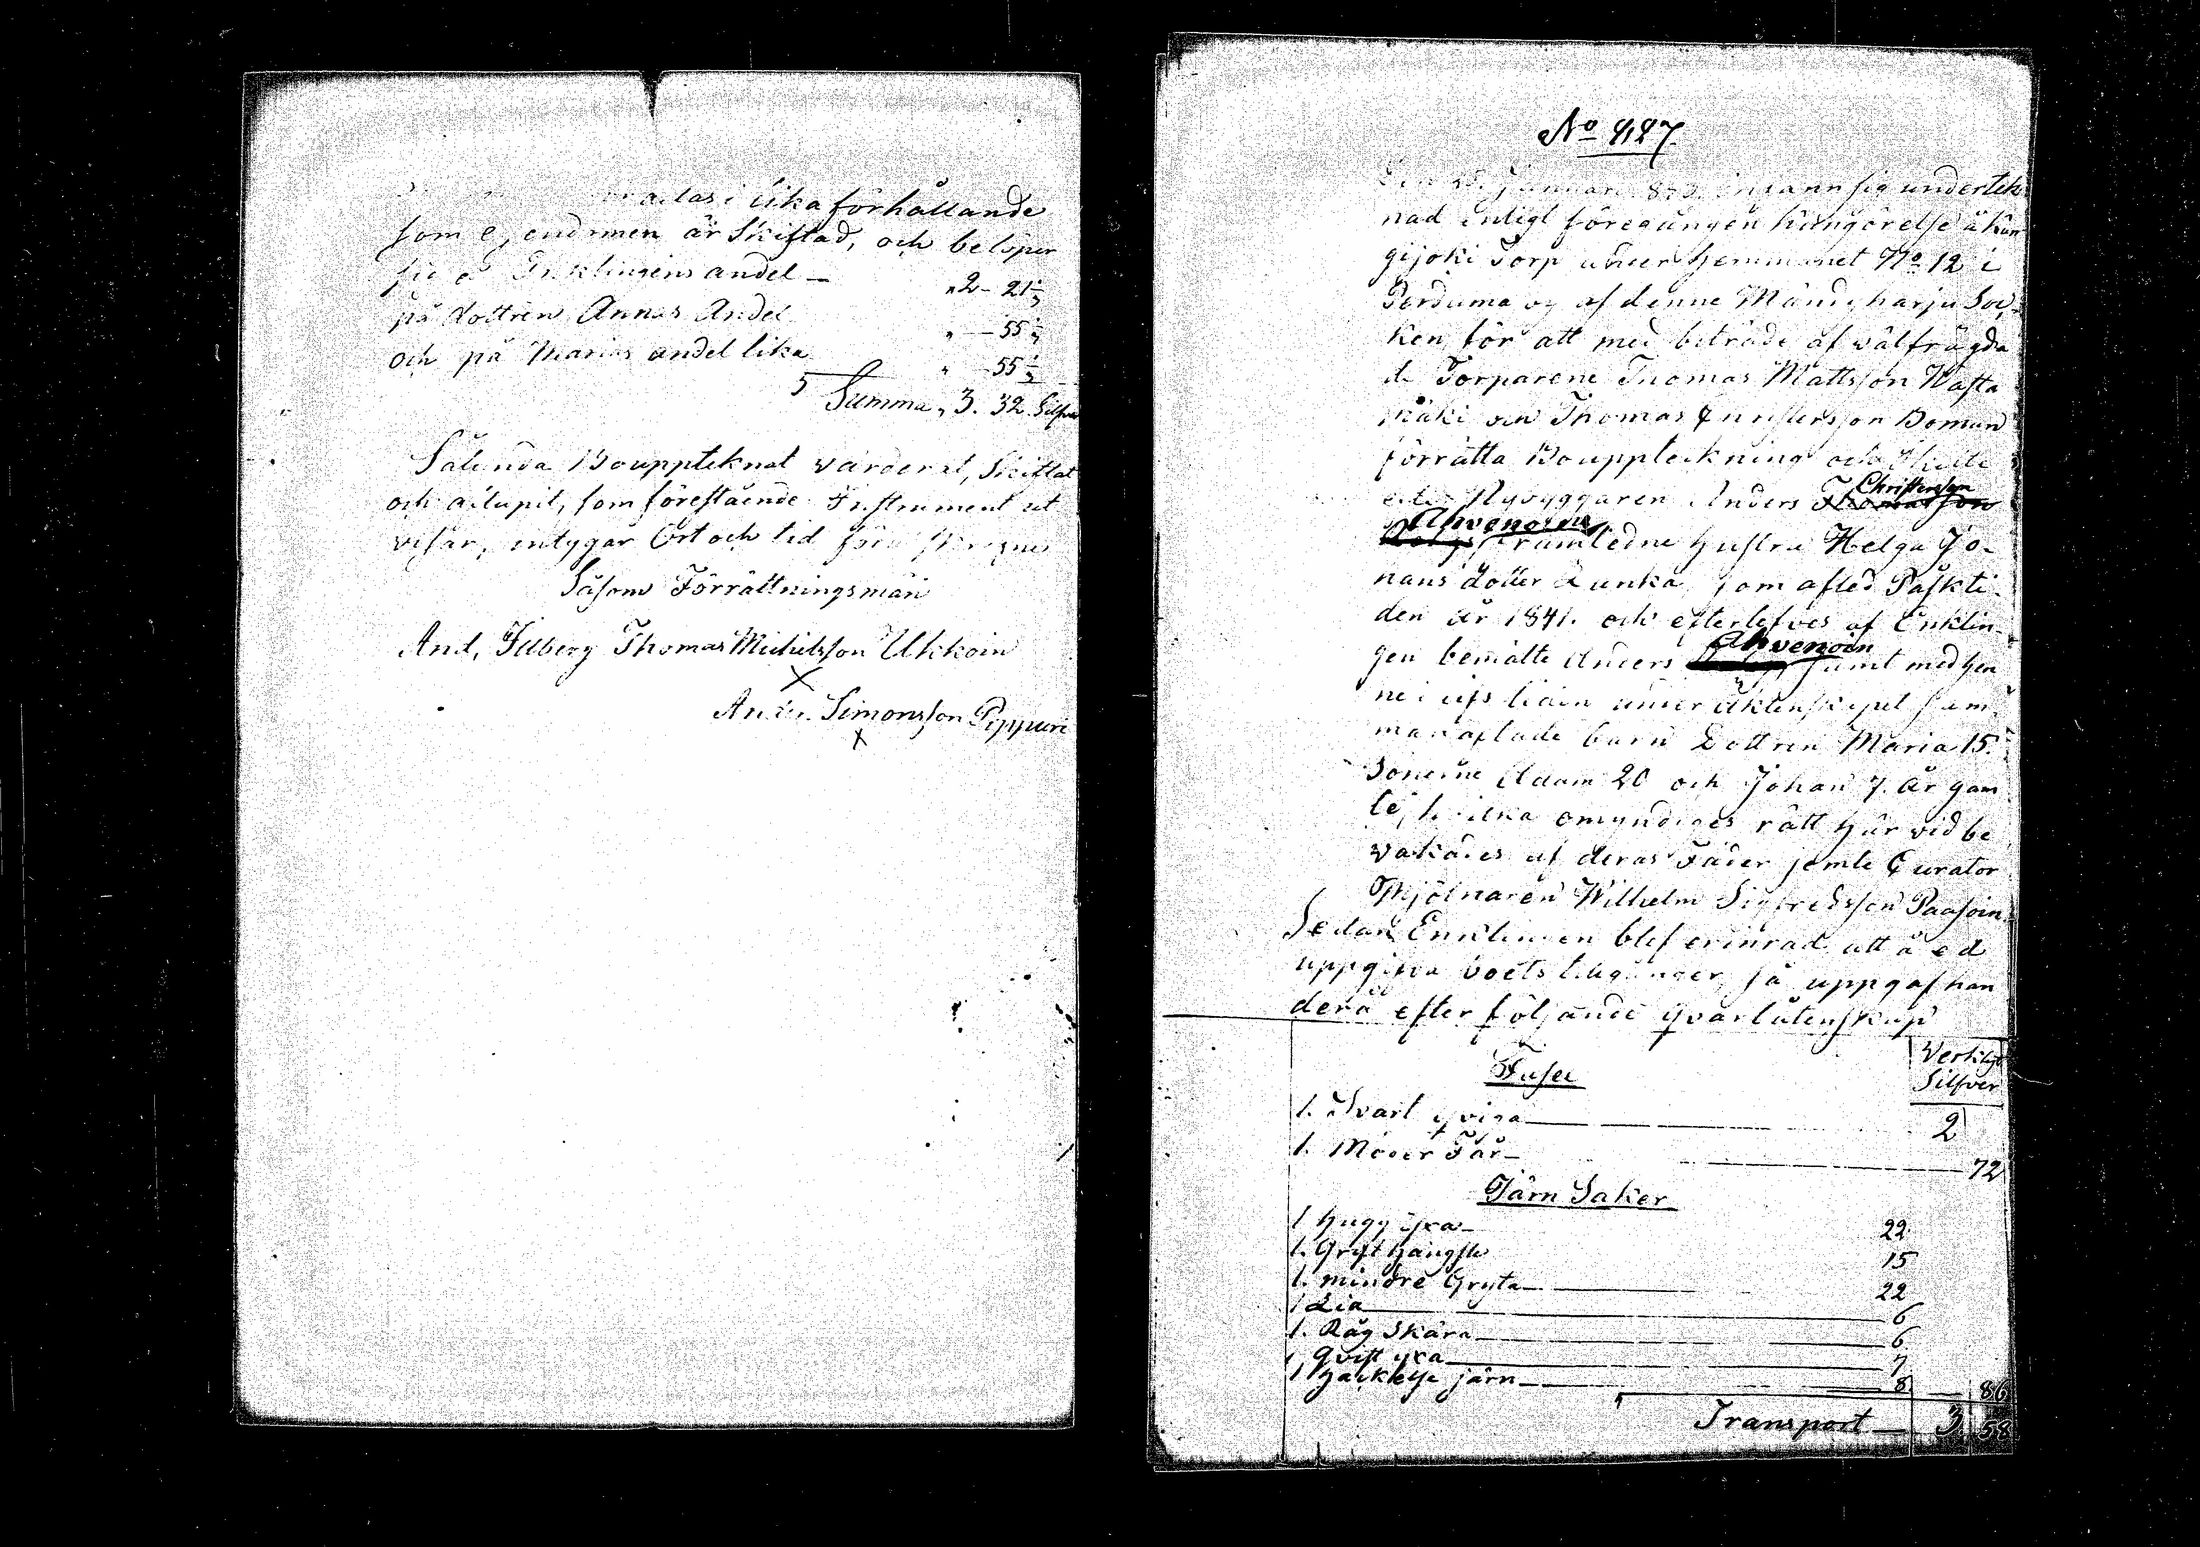 i lika förhållande
som egendomen är Skiftad, och belöper
sig å Enklingens andel — „ 2 – 21 1/3
på dottren Annas Andel „ — 55 1/3
och på Marias andel lika „ — 55 1/3
Summa „ 3. 32 Silfver
Sålunda Bouppteknat värderat, Skiftat
och aflupit, som föreståënde Instrument ut
visar, intygar Ort och tid
Såsom Förrättningsmän
And, Thomas Michelsson Ukkoin
X
Anders Simonsson Pippuri
X
No
Januari infann sig undertek
nad enligt föregången kungörelse å Kan
gijoki Torp under Hemmanet No 12 i
Porduma by af denne Mändyharju Soc,
ken, för att med biträde af välfrägda
de Torparene Thomas Mattsson Wasta
mäki och Thomas Christersson Boman
förrätta Bouppteckning och Skifte
efter Nybyggaren Anders Christersson
Ahvenoisens framledne hustru Helga Jo-
hans dotter Junka, som afled Påskti-
den år 1841. och efterlefves af Enklin-
gen bemälte Anders Ahvenoin samt med hen
ne i lifs tiden under Äktenskapet sam-
manaflade barn Dottren Maria 15.
Sönerne Adam 20 och Johan 7. år gam
le, hvilka omyndiges rätt här vid be
vakades af deras Fader jemte Curator
Mjölnaren Wilhelm Sigfredsson Paasoin,
Sedan Enklingen blef erinrad att å ed
uppgifva boets tillgångar, så uppgaf han
derå efter följande qvarlåtenskap
Verkligt
Silfver
Fuset
1. Svart qviga — 2
1. Moder Får — 72
Järn Saker
1 Hugg yxa — 22.
1. Gryt hängsle 15
1. mindre Gryta — 22
1 Lia — 6
1. Råg Skära — 6
1. Qvist yxa — 7
1 Hackelse järn — 8 — 86
Transport — 3 58